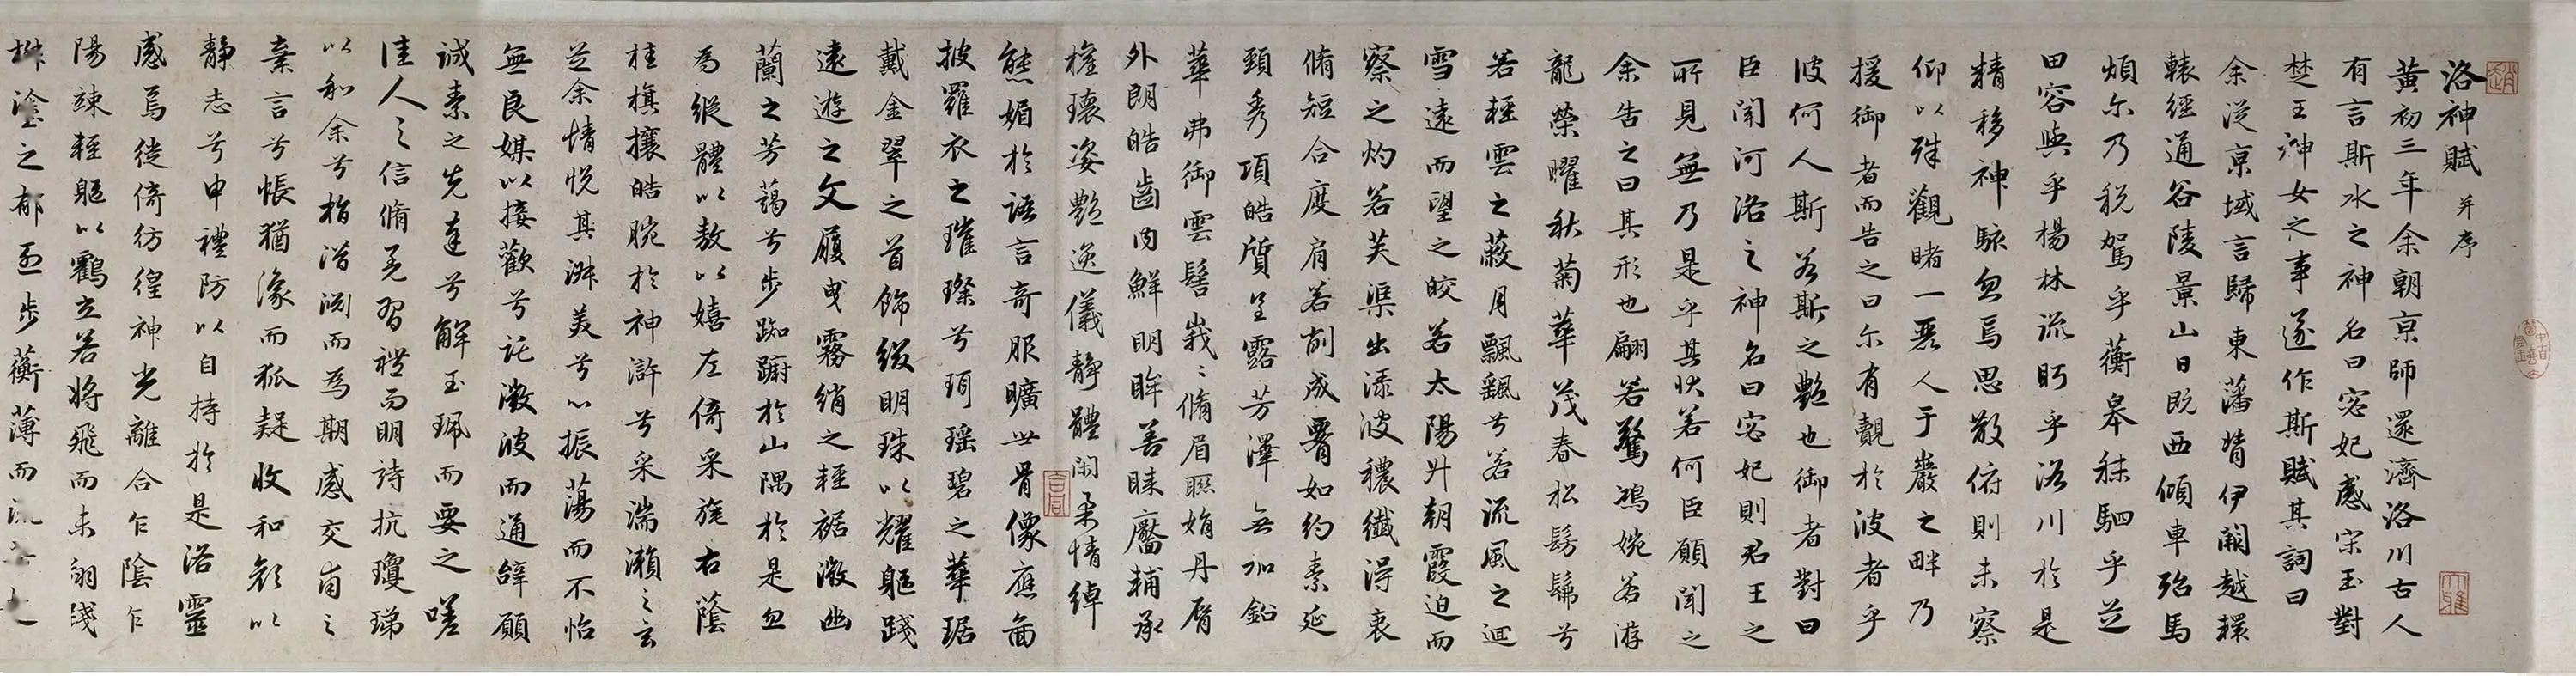 洛神賦 并序
黃初三年余朝京師還濟洛川古人
有言斯水之神名曰宓妃感宋玉對
楚王神女之事遂作斯賦其詞曰
余從京域言歸東藩背伊闕越轘
轅經通谷陵景山日既西傾車殆馬
煩尔乃稅駕乎蘅皋秣駟乎芝
田容與乎楊林流眄乎洛川於是
精移神駭忽焉思散俯則未察
仰以殊觀睹一麗人于巖之畔乃
援御者而告之曰尔有覿於彼者乎
彼何人斯若斯之艷也御者對曰
臣聞河洛之神名曰宓妃則君王之
所見無乃是乎其狀若何臣願聞之
余告之曰其形也翩若驚鴻婉若游
龍榮曜秋菊華茂春松髣髴兮
若輕雲之蔽月飄颻兮若流風之迴
雪遠而望之皎若太陽升朝霞迫而
察之灼若芙渠出渌波穠纖得衷
脩短合度肩若削成腰如約素延
頸秀項皓質呈露芳澤無加鉛
華弗御雲髻峩〻脩眉聯娟丹脣
外朗皓齒內鮮明眸善睞靨輔承
權瓌姿艷逸儀靜體閑柔情綽
態媚於語言奇服曠世骨像應圖
披羅衣之璀璨兮珥瑤碧之華琚
戴金翠之首飾綴明珠以耀軀踐
遠遊之文履曳霧綃之輕裾微幽
蘭之芳藹兮步踟躕於山隅於是忽
焉縱體以敖以嬉左倚采旄右蔭
桂旗攘皓腕於神滸兮采湍瀨之玄
芝余情悅其淑美兮心振蕩而不怡
無良媒以接歡兮託微波而通辭願
誠素之先達兮解玉珮而要之嗟
佳人之信脩羌習禮而明詩抗瓊珶
以和余兮指潛淵而為期感交甫之
棄言兮悵猶豫而狐疑收和顏以
靜志兮申禮防以自持於是洛靈
感焉徙倚彷徨神光離合乍陰乍
陽竦輕軀以鶴立若將飛而未翔踐
椒塗之郁烈步蘅薄而流